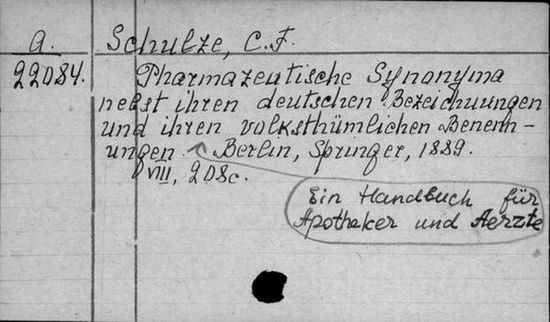 A. Schulze, C.F.
22084. Pharmazeutische Synonyma
nebst ihren deutschen Bezeichnungen
und ihren volksthümlichen Benenn-
ungen. Berlin, Springer, 1889.
VIII, 208c.
Ein Handbuch für
Apotheker und Aerzte